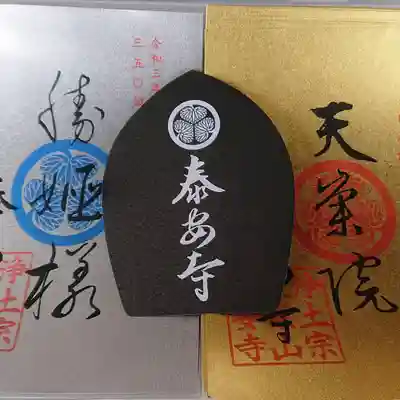 天崇院
浄土宗
山
寺
泰安寺
令和三年
三五〇
勝姫様
浄土宗